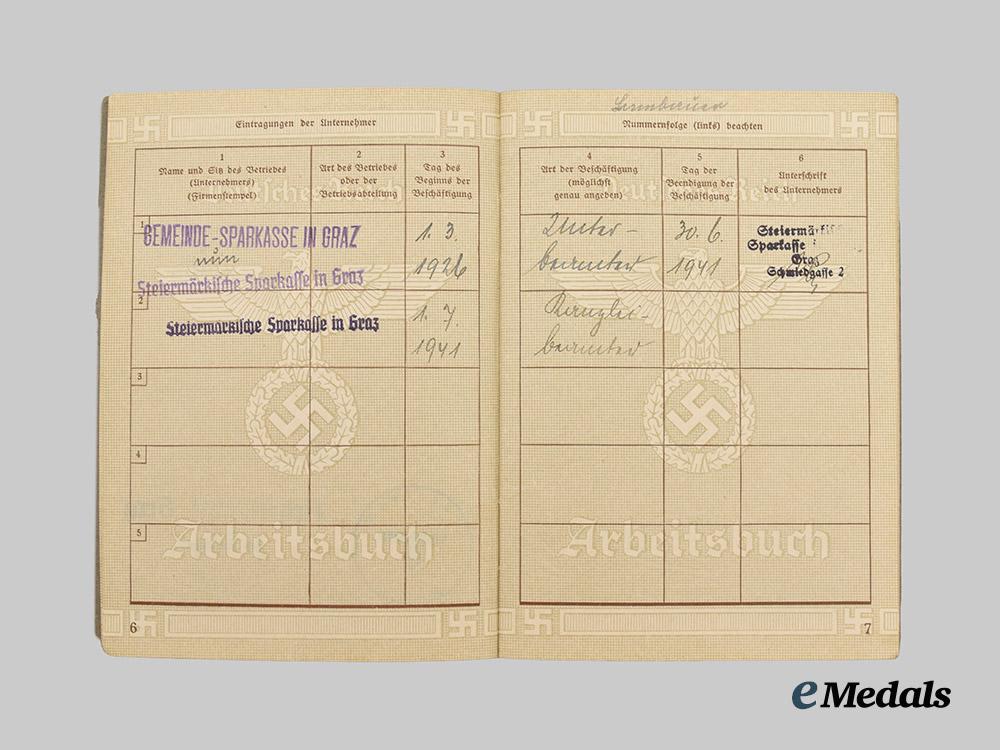 Eintragungen der Unternehmer
1
Name und Sitz des Betriebes
(Unternehmers)
(Firmenstempel)
2
Art des Betriebes
oder der
Betriebsabteilung
3
Tag des
Beginns der
Beschäftigung
1
GEMEINDE-SPARKASSE IN GRAZ
nun
Steiermärkische Sparkasse in Graz
1. 3.
1926
2
Steiermärkische Sparkasse in Graz
1. 7.
1941
3
4
5
Deutsches Reich
Arbeitsbuch
6
Nummernfolge (links) beachten
4
Art der Beschäftigung
(möglichst
genau angeben)
5
Tag der
Beendigung der
Beschäftigung
6
Unterschrift
des Unternehmers
Unter-
beamter
30. 6.
1941
Steiermärkische
Sparkasse
Graz
Schmiedgasse 2
Kanzlei-
beamter
Deutsches Reich
Arbeitsbuch
7
eMedals